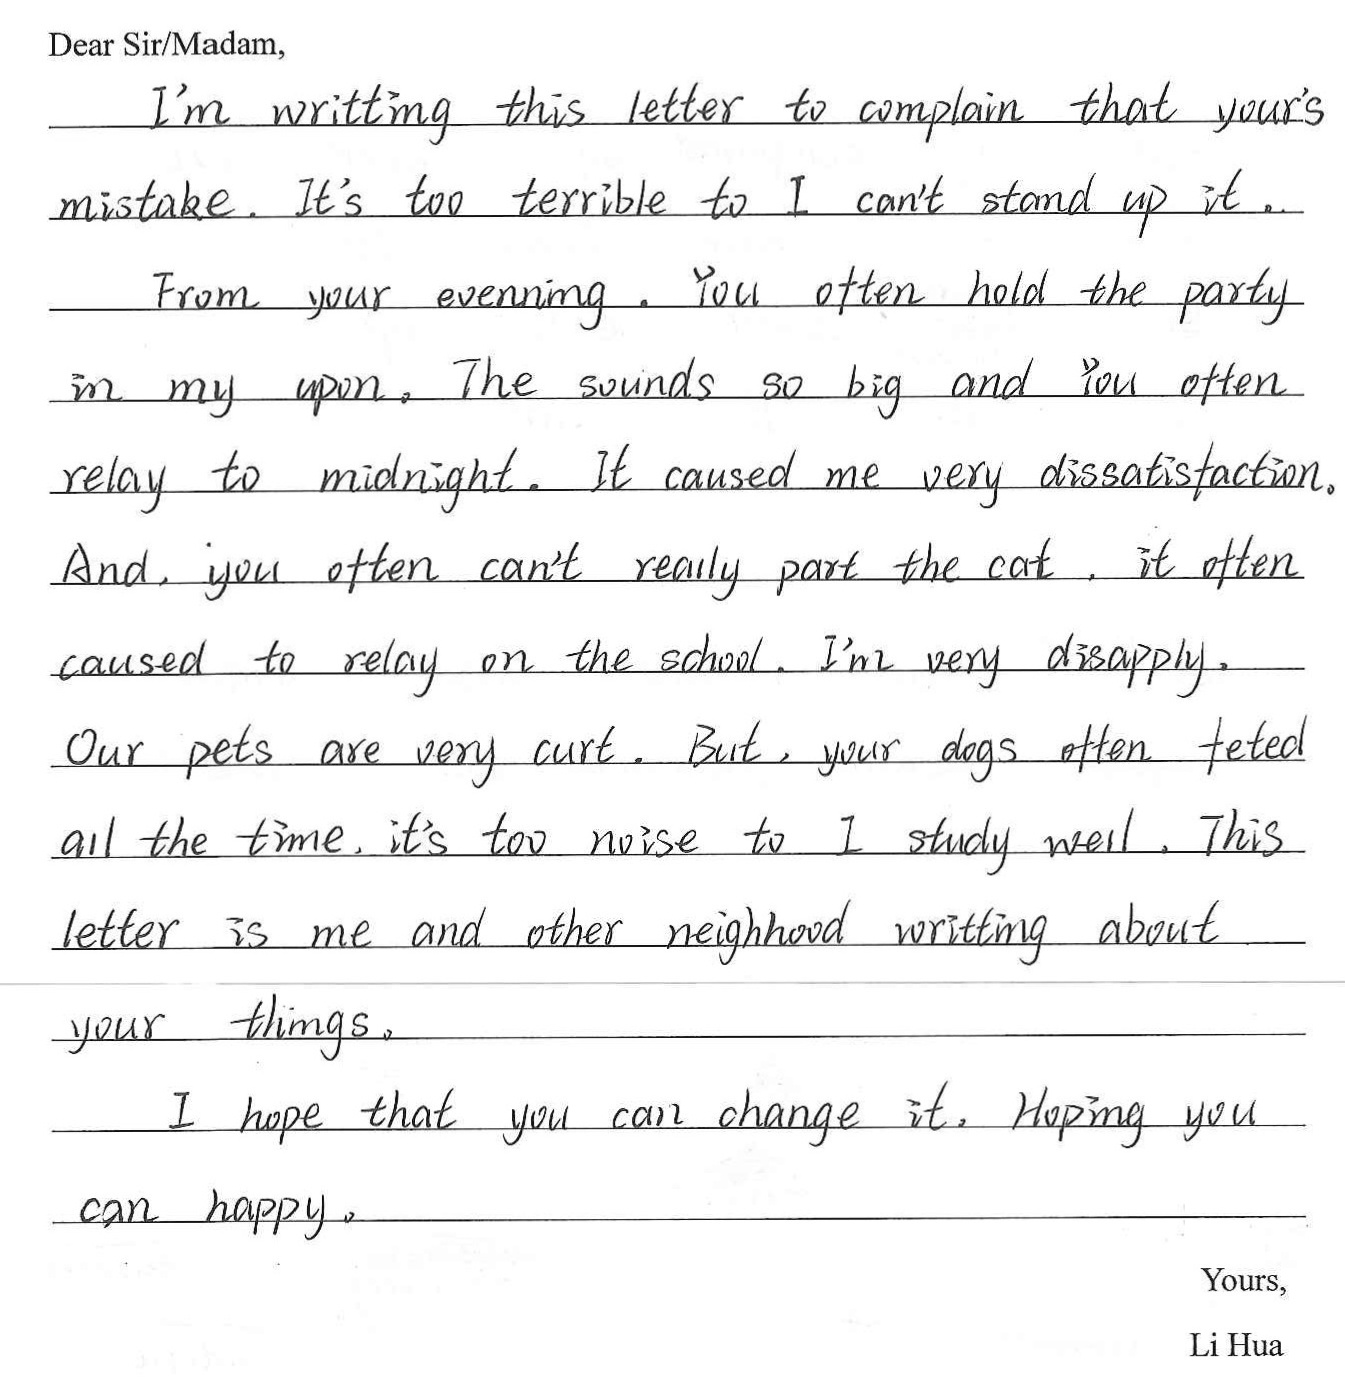 Dear Sir/Madam,
I'm writting this letter to complain that your's
mistake. It's too terrible to I can't stand up it.
From your evenning. You often hold the party
in my upon. The sounds so big and You often
relay to midnight. It caused me very dissatisfaction.
And, you often can't really part the cat, it often
caused to relay on the school. I'm very disapply.
Our pets are very curt. But, your dogs often feted
all the time, it's too noise to I study well. This
letter is me and other neighhood writting about
your things.
I hope that you can change it. Hoping you
can happy.
Yours,
Li Hua